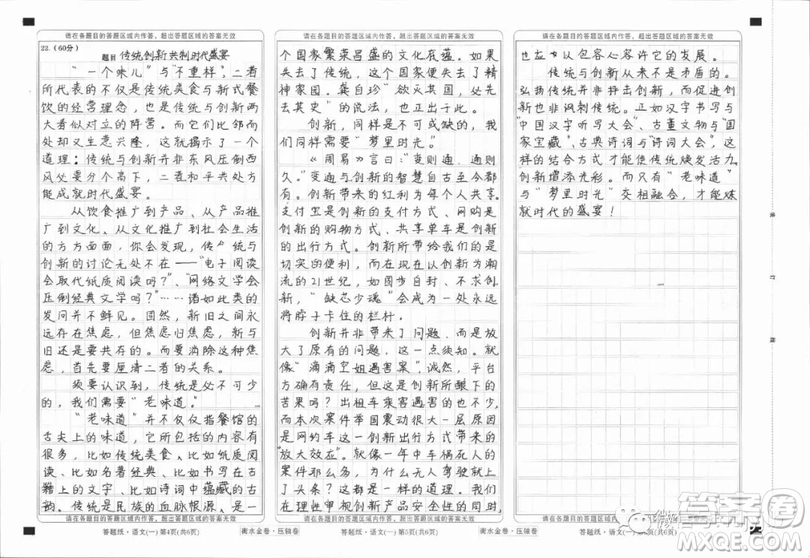 请在各题目的答题区域内作答，超出答题区域的答案无效
22.（60分）
题目 传统创新共制时代盛宴
“一个味儿”与“不重样”，二者
所代表的不仅是传统美食与新式餐
饮的经营理念，也是传统与创新两
大看似对立的阵营。而它们比邻而
处却又生意兴隆，这就揭示了一个
道理：传统与创新并非东风压倒西
风处要分个高下，二者和平共处方
能成就时代盛宴。
从饮食推广到产品、从产品推
广到文化、从文化推广到社会生活
的方方面面，你会发现，传统与
创新的讨论无处不在——“电子阅读
会取代纸质阅读吗？”、“网络文学会
压倒经典文学吗？”……诸如此类的
发问并不鲜见。固然，新旧之间永
远存在焦虑，但焦虑不是对立，新与
旧还是要共存的。而要消除这种焦
虑，首先要厘清二者的关系。
须要认识到，传统是必不可少
的，我们需要“老味道”。
“老味道”并不仅仅指餐馆的
舌尖上的味道，它所包括的内容有
很多，比如传统美食、比如纸质阅
读、比如名著经典、比如书写在古
籍上的文字、比如诗词中蕴藏的古
韵。传统是民族的血脉根源，是一
请在各题目的答题区域内作答，超出答题区域的答案无效
答题纸·语文(一) 第4页(共6页)
请在各题目的答题区域内作答，超出答题区域的答案无效
个国家繁荣昌盛的文化底蕴。如果
失去了传统，这个国家便失去了精
神家园。龚自珍“欲灭其国，必先
去其史”的说法，也正出于此。
创新，同样是不可或缺的，我
们同样需要“梦里时光”。
《周易》言曰：“变则通，通则
久。”变通与创新的智慧自古至今都有。
创新带来的红利为每个人共享。
支付宝是创新的支付方式、网购是
创新的购物方式、共享单车是创新的
出行方式。创新所带给我们的是
切切实实的便利。而在创新成为潮
流的21世纪，如果固步自封、不求创
新，“缺芯少魂”会成为一处永远
将脖子卡住的栏杆。
创新并非带来了问题，而是放
大了原有的问题，这一点须知。就
像“滴滴空姐遇害案”，诚然，平台
的缺失是有，但这是创新所酿下的
苦果吗？出租车乘客遇害的也不少，
而本次案件举国震动很大一层原因
是网约车这一创新出行方式带来的
放大效应。就像一年中车祸死人的
案件那么多，为什么无人驾驶就上
了头条？这都是一个道理。我们要
在理性审视创新安全性的同时，
请在各题目的答题区域内作答，超出答题区域的答案无效
衡水金卷·压轴卷
答题纸·语文(一) 第5页(共6页)
请在各题目的答题区域内作答，超出答题区域的答案无效
以包容心容许它的发展。
传统与创新从来不是对立的。
弘扬传统并非抨击创新，而促进创
新也非讽刺传统。正如汉字书写与
“中国汉字听写大会”、古董文物与“国
家宝藏”、古典诗词与“诗词大会”，这
样的结合方式才能使传统焕发活力、
创新增添光彩。而只有“老味道”
与“梦里时光”交相融合，才能炼
就时代的盛宴！
请在各题目的答题区域内作答，超出答题区域的答案无效
衡水金卷·压轴卷
答题纸·语文(一)